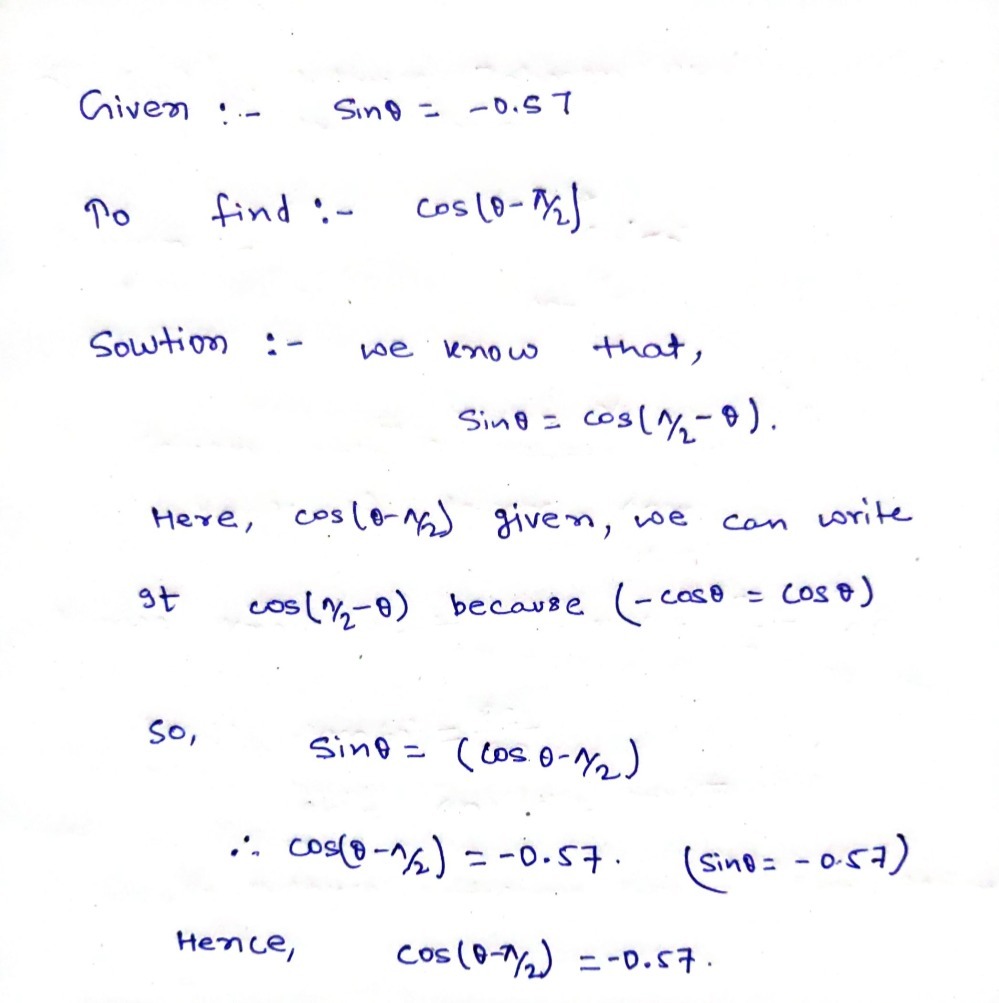 Given :- Sinθ = -0.57
To find :- cos(θ-π/2)
Solution :- we know that,
Sinθ = cos(π/2-θ).
Here, cos(θ-π/2) given, we can write
It cos(π/2-θ) because (-cosθ = cosθ)
So, Sinθ = (cos θ-π/2)
∴ cos(θ-π/2) = -0.57. (Sinθ = -0.57)
Hence, cos(θ-π/2) = -0.57.